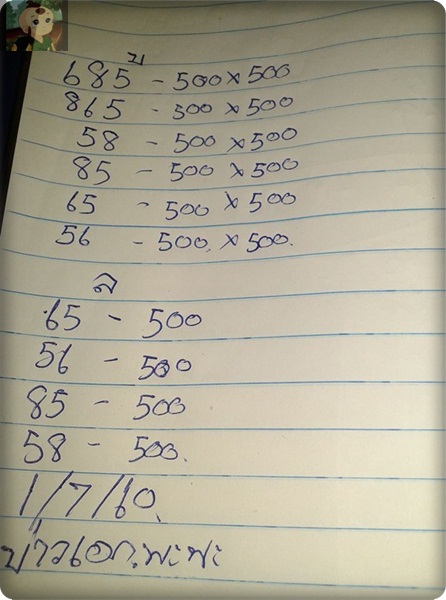 บ
685 - 500 x 500
865 - 500 x 500
58 - 500 x 500
85 - 500 x 500
65 - 500 x 500
56 - 500. x 500.
ล
65 - 500
56 - 500
85 - 500
58 - 500.
1/7/60.